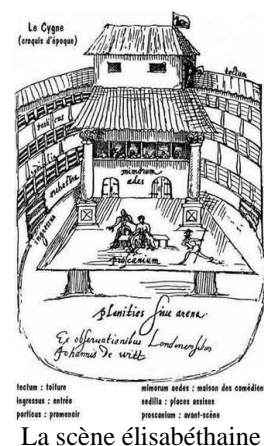 Le Cygne
(croquis d'époque)
tectum
porticus
sedilia
orchestra
ingressus
mimorum
ædes
proscænium
planities siue arena
Ex observationibus Londinensibus
Johannis de witt
tectum : toiture
ingressus : entrée
porticus : promenoir
mimorum aedes : maison des comédien
sedilla : places assises
proscanium : avant-scène
La scène élisabéthaine